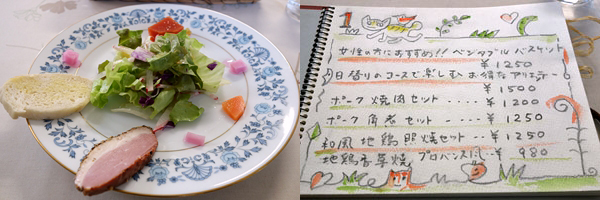 1
女性の方におすすめ!! ベジタブル バスケット
¥1250
日替りのコースで楽しむお得なアリエッテー
¥1500
ポーク焼肉セット・・・・¥1200
ポーク角煮セット・・・・¥1250
和風地鶏照焼セット・・¥1250
地鶏香草焼プロバンス風・・¥980